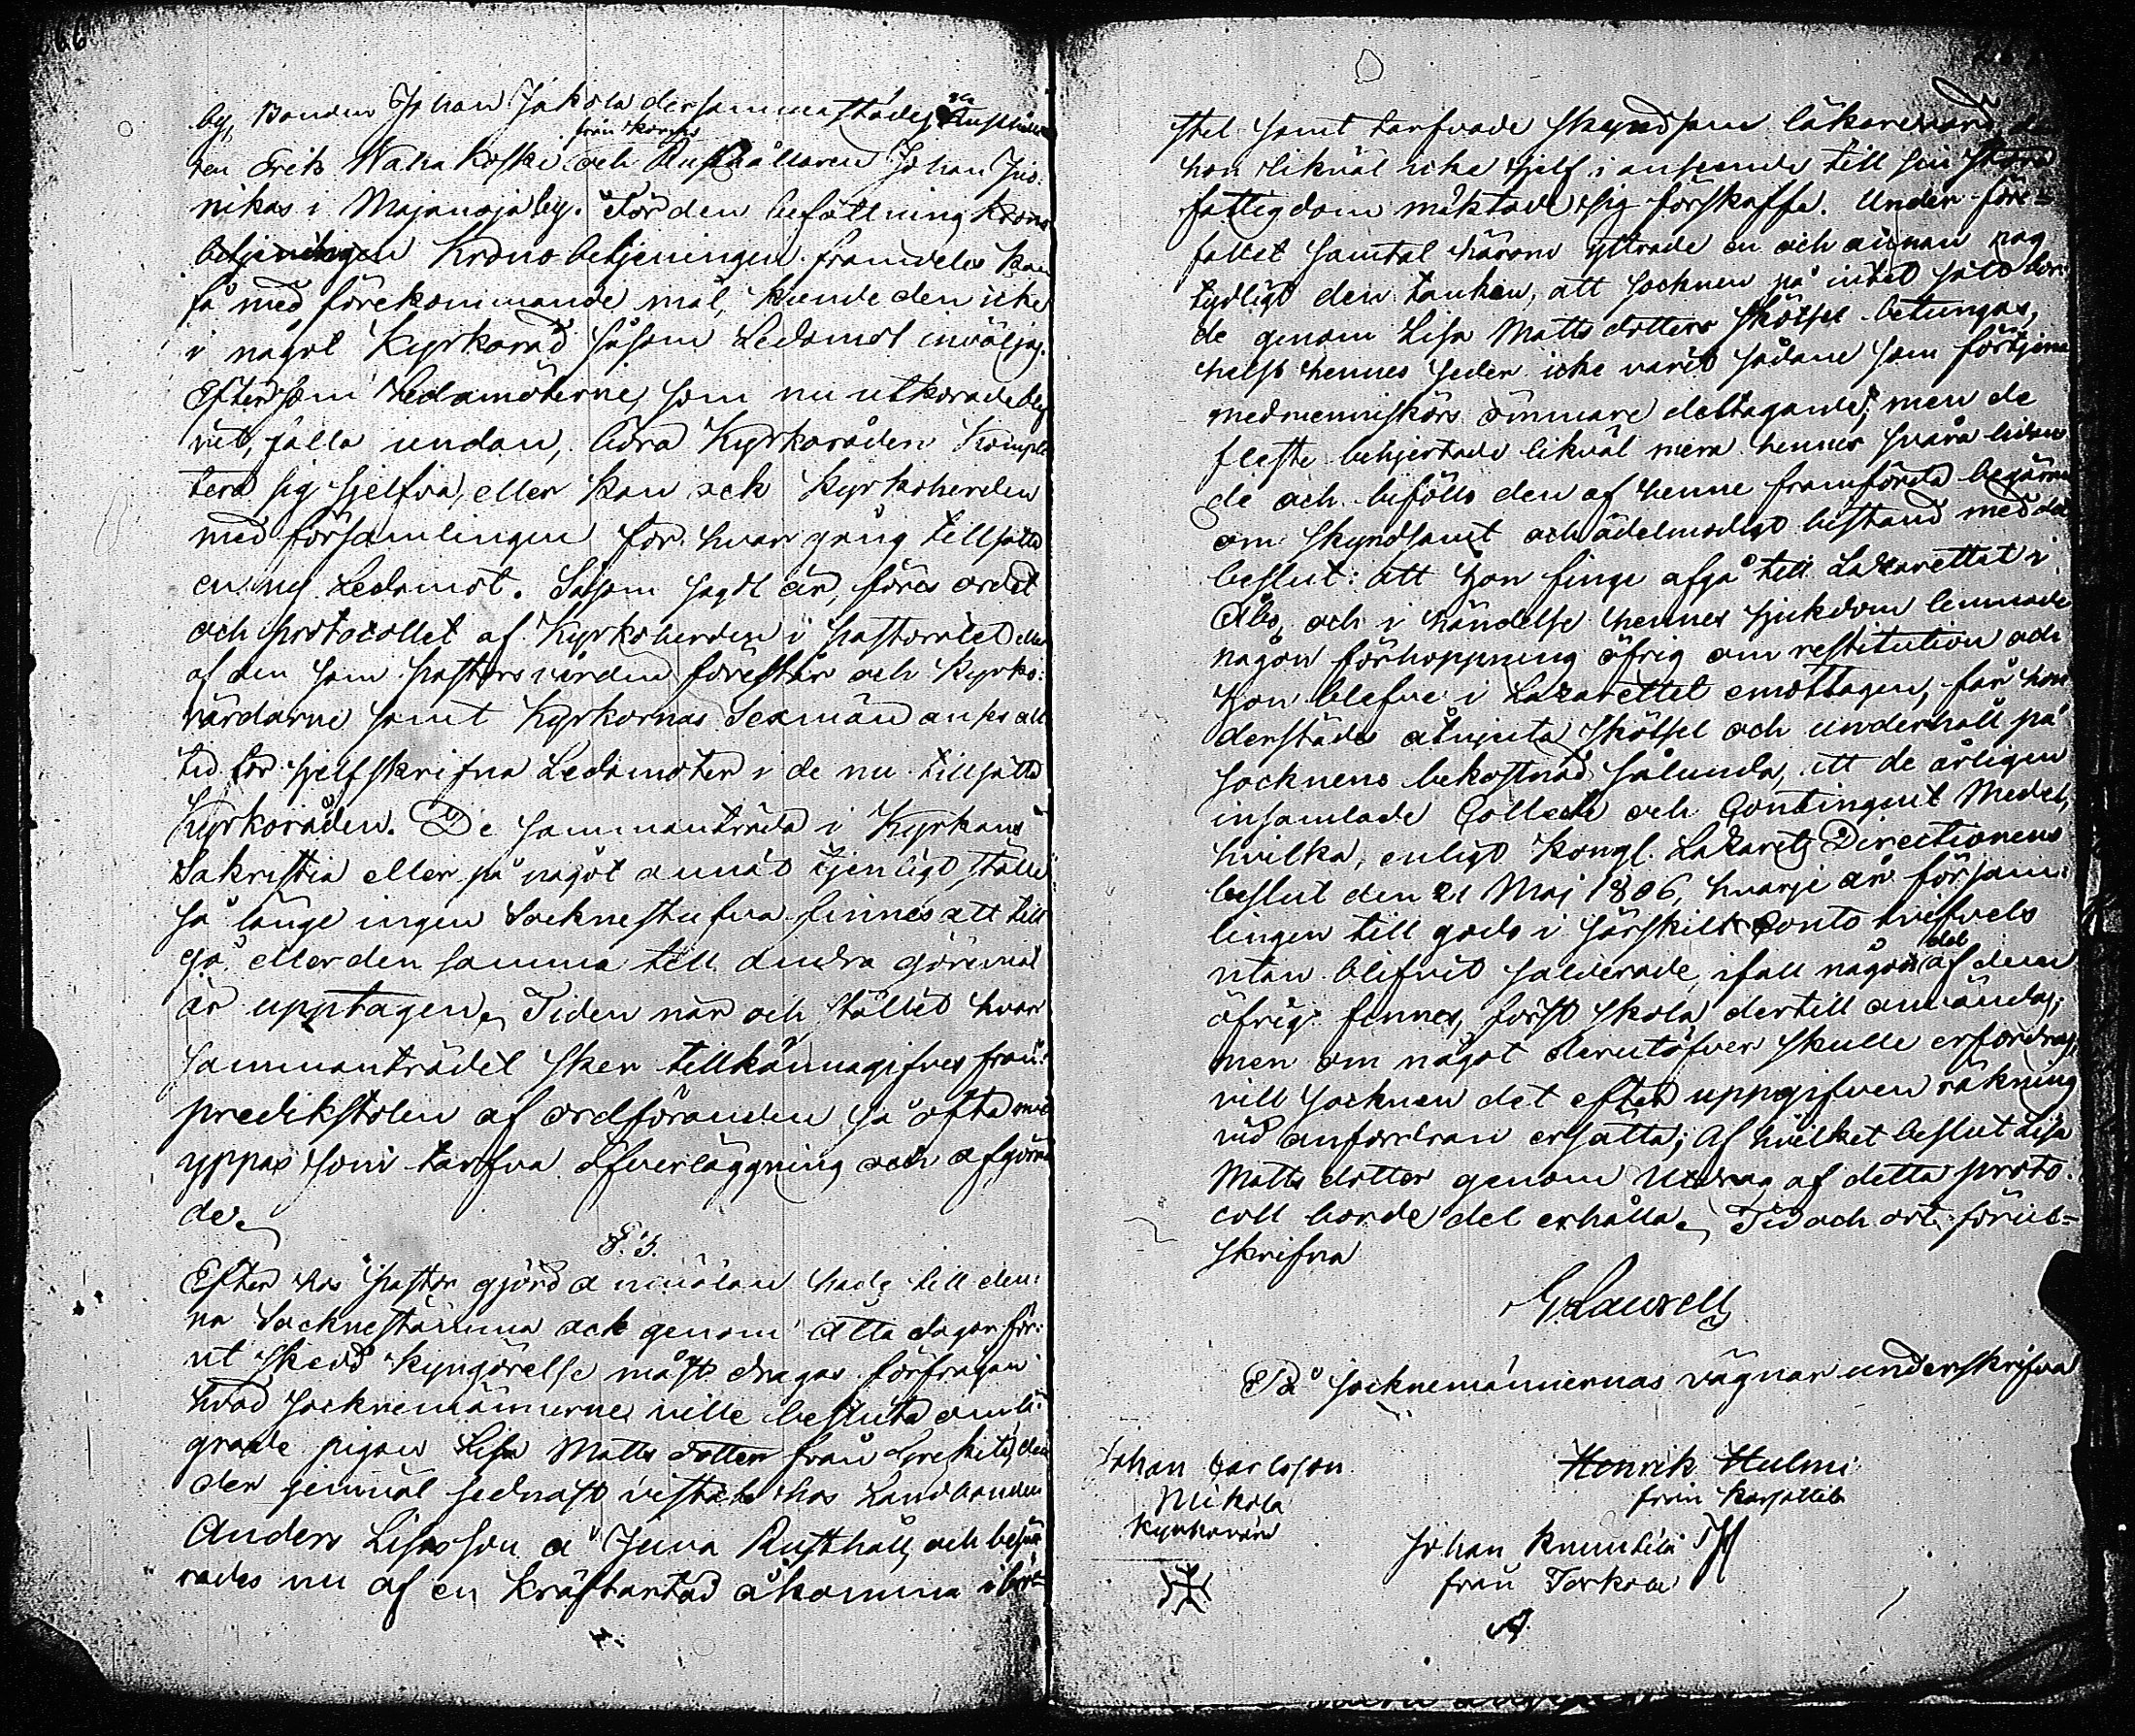 66
by, Bonden Johan Jakola dersammastädes,
ten Erik Wahakoski från Karjas och Rusthållaren Johan Jus:
nikas i Majanojaby. För den befattning Krono
betjeningen Kronobetjeningen framdeles kan
få med förekommande mål, kunde den icke
i något Kyrkoråd såsom Ledamot inväljas.
Eftersom Ledamöterne, som nu utkorade blef
vit, falla undan, böra Kyrkoråden komple
tera sig sjelfva, eller kan ock Kyrkoherden
med församlingen för hvar gång tillsätta
en ny Ledamot. Såsom sagdt är, föres ordet
och protocollet af Kyrkoherden i pastoratet eller
af den som pastors vården förestår och Kyrko:
värdarne samt Kyrkornas Sexmän anses all
tid för sjelfskrifna Ledamöter i de nu tillsatta
Kyrkoråden. De sammanträda i Kyrkans
Sakristia eller på något annat tjenligt ställe
så länge ingen Socknestufva finnes att till
gå eller den samma till andra göremål
är upptagen. Tiden när och stället hvar
sammanträdet sker tillkännagifves från
predikstolen af ordföranden så ofta mål
yppas som tarfva öfverläggning och afgöran
de.
§. 3.
Efter hos Pastor gjord anmälan hade till den:
na Socknestämma ock genom åtta dagar för:
ut skedd kyngörelse måst dragas förfrågan
hvad Socknemännerne ville besluta om
pigan Lisa Matts dotter från
der sednast vistats hos Landbonden
Anders Lisasson å Juva Rusthåll, och besvä
rades nu af en kräftartad åkomma i
stel samt tarfvade skyndsam läkarevård, den
hon likväl icke sjelf i anseende till sin stora
fattigdom mäktade sig förskaffa. Under före=
fallet samtal härom yttrade en och annan nog
tydligt den tanken, att socknen på intet sätt bor
de genom Lisa Matts dotters skötsel betungas,
helst hennes seder icke varit sådane som förtjena
medmenniskors ömmare deltagande; men de
fleste behjertade likväl mera hennes svåra lidan
de och biföllo den af henne framförda begäran
om skyndsamt och ädelmodigt bistånd med det
beslut: att hon finge afgå till Lazarettet i
Åbo, och i händelse hennes sjukdom lemnade
någon förhoppning öfrig om restitution och
hon blefve i Lazarettet emottagen, får hon
derstädes åtnjuta skötsel och underhåll på
socknens bekostnad sålunda, att de årligen
insamlade Collect och Contingent Medel,
hvilka, enligt Kongl. Lazaretts Directionens
beslut den 21 Maj 1806, hvarje år försam:
lingen till godo i särskilt Conto tvifvels
utan blifvit salderade, ifall någon del af dem
öfrig finnes, först skola dertill användas;
men om något derutöfver skulle erfordras,
vill socknen det efter uppgifven räkning
vid anfordran ersätta; Af hvilket beslut Lisa
Matts dotter genom Utdrag af detta proto:
coll borde del erhålla. Tid och ort förut=
skrifna
G Laurell
På Socknemännernas vägnar underskrifva
Johan Carlsson
Mikola
Kyrkovärd
Henrik Hulmi
från Karjattila
Johan Knuutila
från Torkola